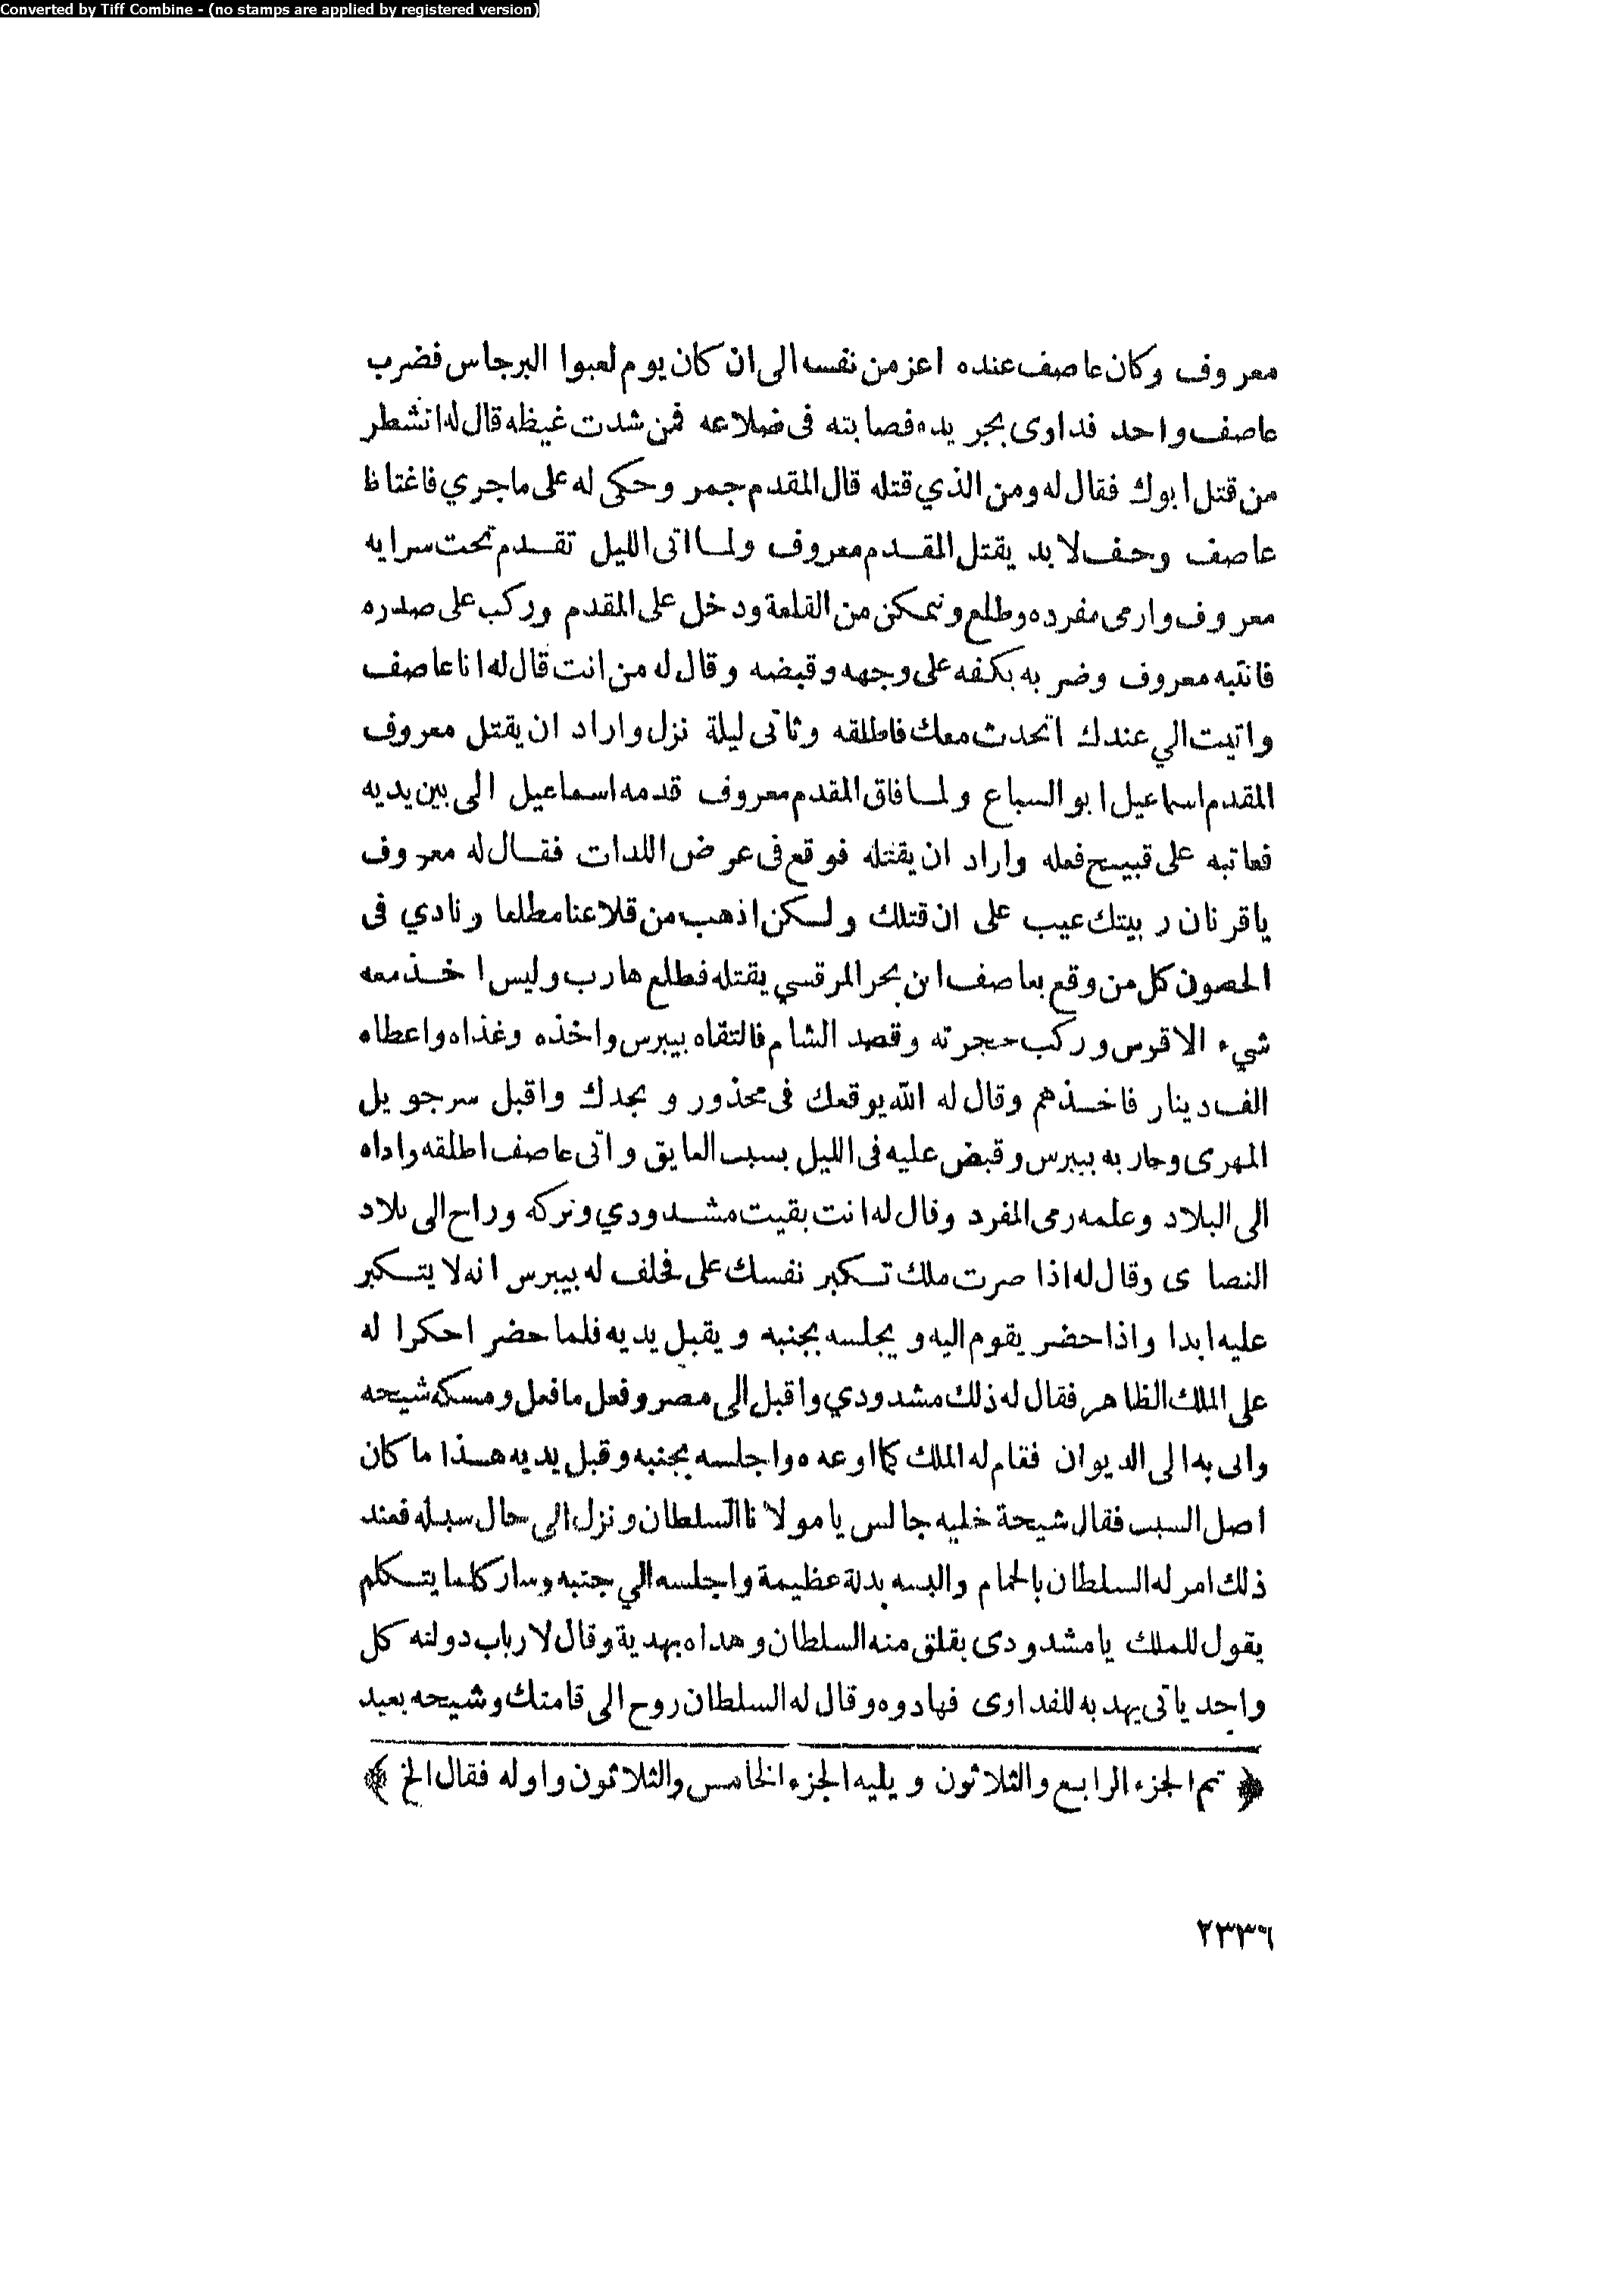 Converted by Tiff Combine - (no stamps are applied by registered version)
معروف وكان عاصف عنده اعز من نفسه الى ان كان يوم لعبوا البرجاس فضرب
عاصف واحد فداوى بجريده فصابته فى ضلاعه فمن شدت غيظه قال له انشطر
من قتل ابوك فقال له ومن الذي قتله قال المقدم جمر وحكى له على ماجري فاغتاظ
عاصف وحف لابد يقتل المقدم معروف ولما اتى الليل تقدم تحت سرايه
معروف وارمى مفرده وطلع وتمكن من القلعة ودخل على المقدم وركب على صدره
فانتبه معروف وضربه بكفه على وجهه وقبضه وقال له من انت قال له انا عاصف
واتيت الي عندك اتحدث معك فاطلقه وثانى ليلة نزل واراد ان يقتل معروف
المقدم اسماعيل ابو السباع ولما فاق المقدم معروف قدمه اسماعيل الى بين يديه
فعاتبه على قبيح فعله واراد ان يقتله فوقع فى عرض اللدات فقال له معروف
ياقرنان ربيتك عيب على ان قتلك ولكن اذهب من قلاعنا مطلعا ونادي فى
الحصون كل من وقع بعاصف ابن بحر المرقسي يقتله فطلع هارب وليس اخذ معه
شيء الا قوس وركب حجرته وقصد الشام فالتقاه بيبرس واخذه وغذاه واعطاه
الف دينار فاخذهم وقال له الله يوقعك فى محذور وبجدك واقبل سرجويل
المهرى وحاربه بيبرس وقبض عليه فى الليل بسبب العايق واتى عاصف اطلقه واداه
الى البلاد وعلمه رمى المفرد وقال له انت بقيت مشدودي وتركه وراح الى بلاد
النصا ى وقال له اذا صرت ملك تكبر نفسك على فحلف له بيبرس انه لا يتكبر
عليه ابدا واذا حضر يقوم اليه ويجلسه بجنبه ويقبل يديه فلما حضر احكرا له
على الملك الظاهر فقال له ذلك مشدودي واقبل الى مصر وفعل مافعل ومسكه شيحه
واتى به الى الديوان فقام له الملك كما اوعده واجلسه بجنبه وقبل يديه هذا ما كان
اصل السبب فقال شيحة خليه جالس يامولانا السلطان ونزل الى حال سبيله فعند
ذلك امر له السلطان بالحمام والبسه بدلة عظيمة واجلسه الي جنبه وسار كلما يتكلم
يقول للملك يامشدودى بقلق منه السلطان وهداه بهدية وقال لارباب دولته كل
واحد ياتى يهد به للفداوى فهادوه وقال له السلطان روح الى قامتك وشيحه بعيد
﴿ تم الجزء الرابع والثلاثون ويليه الجزء الخامس والثلاثون واوله فقال الخ ﴾
٢٣٣٦